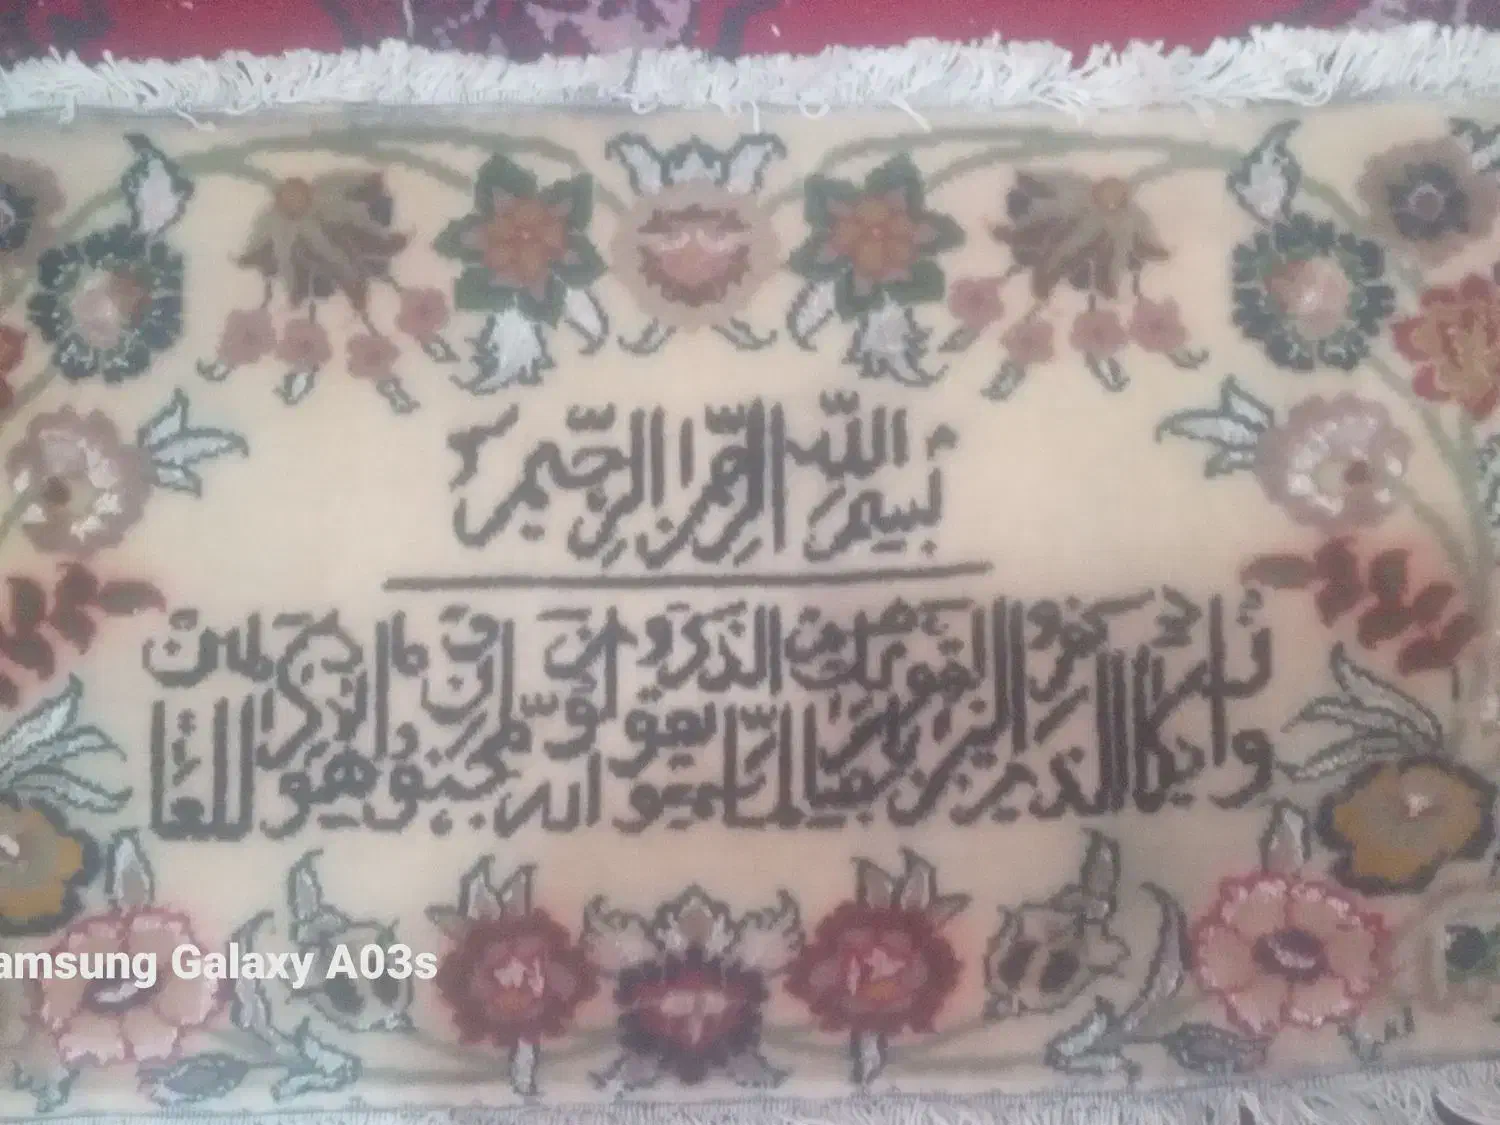 بسم الله الرحمن الرحيم
وان يكاد الذين كفروا ليزلقونك بابصارهم لما سمعوا الذكر و يقولون انه لمجنون و ما هو الا ذكر للعالمين
amsung Galaxy A03s